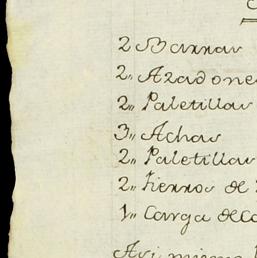 2 Barras
2,, Azadone
2,, Paletillas
3,, Achas
2,, Paletillas
2,, Fierros de
1,, Carga de
Asi mismo